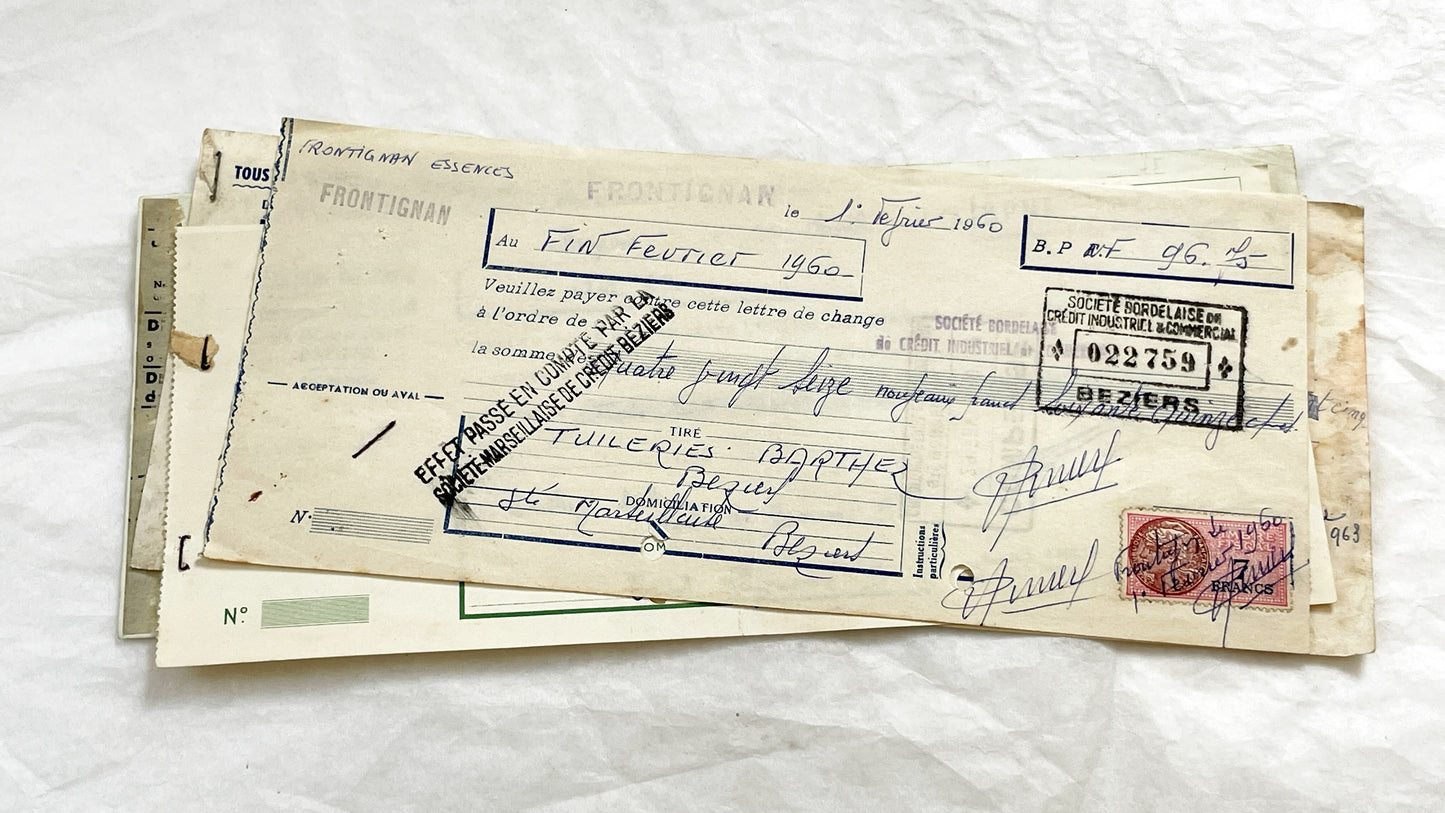 FRONTIGNAN ESSENCES
FRONTIGNAN
FRONTIGNAN
le 1° Février 1960
Au FIN FEVRIER 1960
B. P NF 96. 75
Veuillez payer contre cette lettre de change
à l'ordre de
SOCIÉTÉ BORDELAISE
de CRÉDIT INDUSTRIEL
la somme de quatre vingt seize nouveaux francs soixante quinze cts
SOCIÉTÉ BORDELAISE DE
CRÉDIT INDUSTRIEL & COMMERCIAL
022759
BEZIERS
EFFET PASSÉ EN COMPTE PAR LA
SOCIÉTÉ MARSEILLAISE DE CRÉDIT BÉZIERS
ACCEPTATION OU AVAL
TIRÉ
TUILERIES BARTHEZ
Beziers
DOMICILIATION
Sté Marseillaise
Beziers
OM
Instructions
particulières
N·
Le 1960
1° Février
7
FRANCS
TOUS
D
N
D
D
d
Nº
963